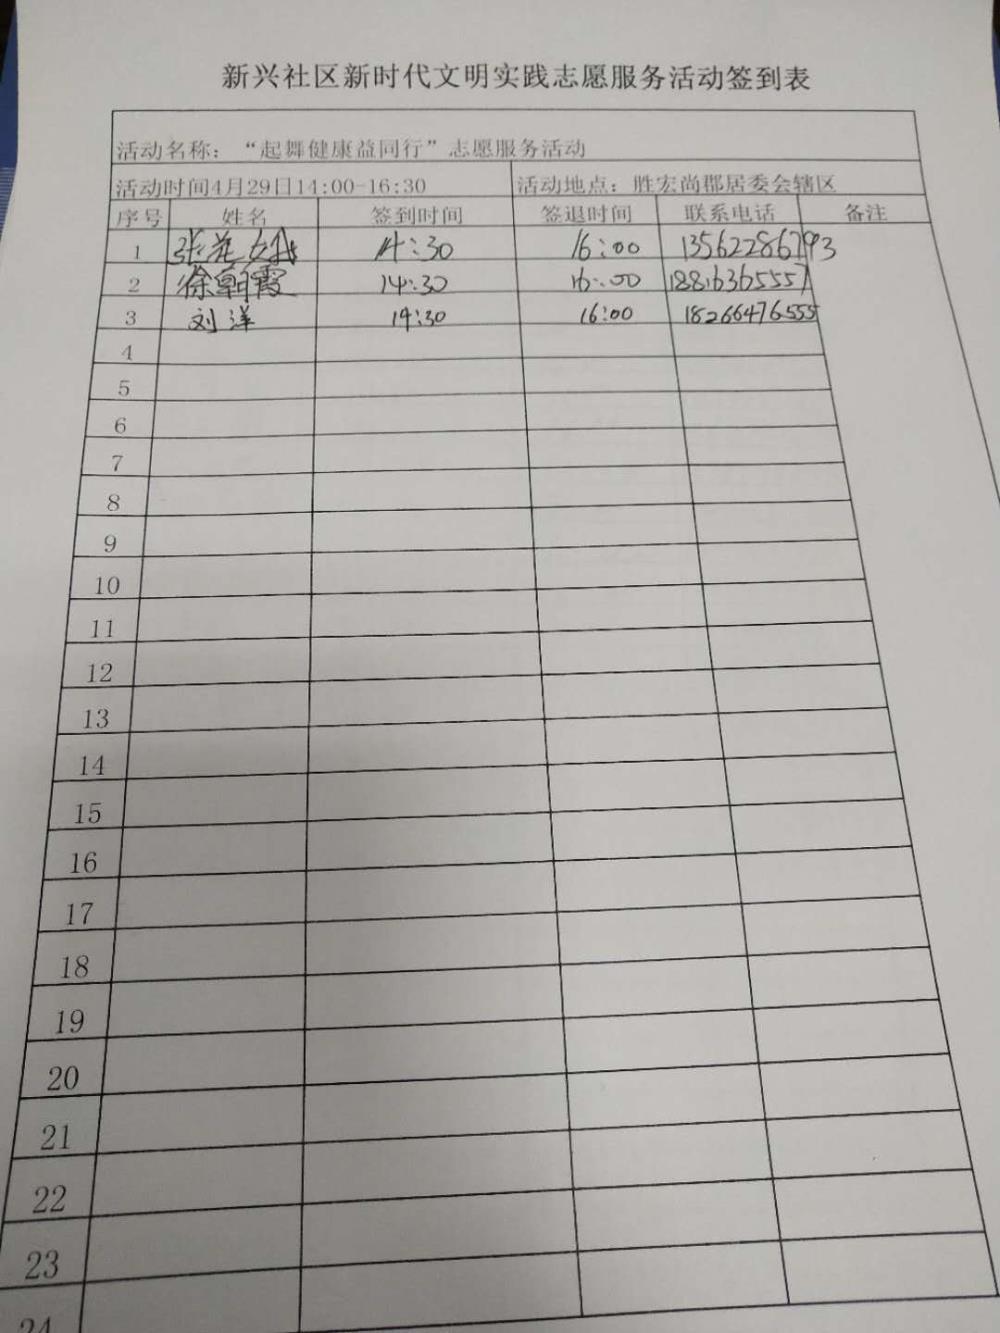 新兴社区新时代文明实践志愿服务活动签到表
活动名称：“起舞健康益同行”志愿服务活动
活动时间4月29日14:00-16:30 活动地点：胜宏尚郡居委会辖区
序号 姓名 签到时间 签退时间 联系电话 备注
1 张花 14:30 16:00 13562286793
2 徐朝霞 14:30 16:00 18816365557
3 刘洋 14:30 16:00 18266476555
4
5
6
7
8
9
10
11
12
13
14
15
16
17
18
19
20
21
22
23
24